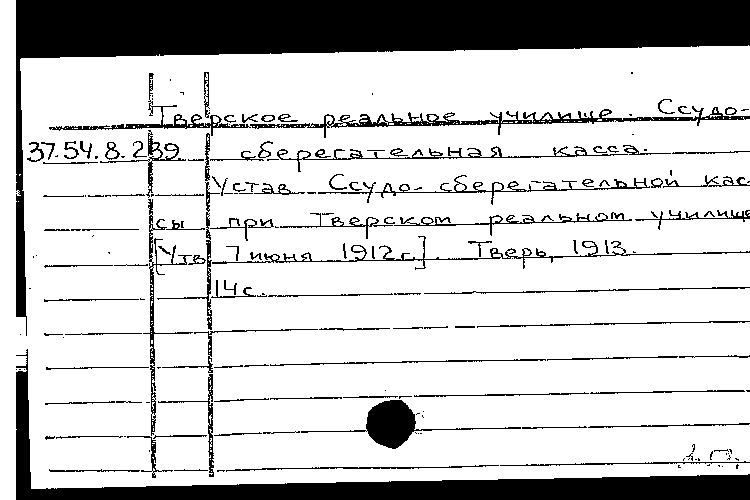 Тверское реальное училище. Ссудо-
37.54.8.239 сберегательная касса.
Устав Ссудо-сберегательной кас-
сы при Тверском реальном училище
[Утв 7 июня 1912 г.]. Тверь, 1913.
14 с.